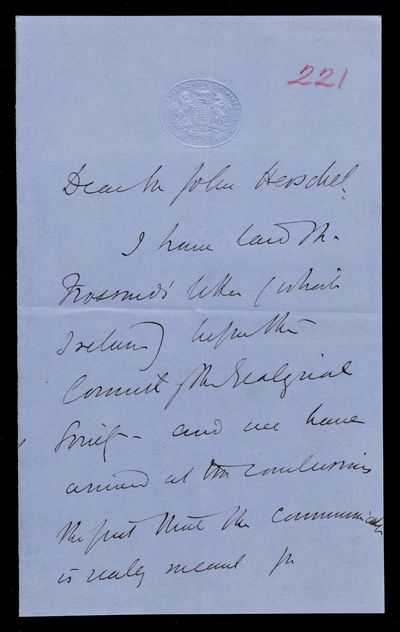 221
Dear Sir John Herschel,
I have laid Mr.
letter (which
I return) before the
Council of the Geological
Society - and we have
arrived at the conclusion
the first that the communication
is really meant for